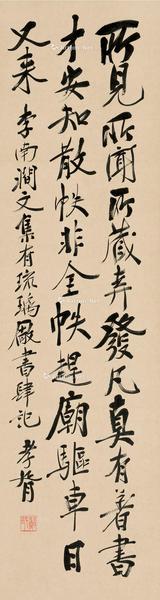 所見所聞所藏弆發凡真有著書
才安知散帙非全帙趕廟驅車日
又來 李南澗文集有琉璃廠書肆記 孝胥